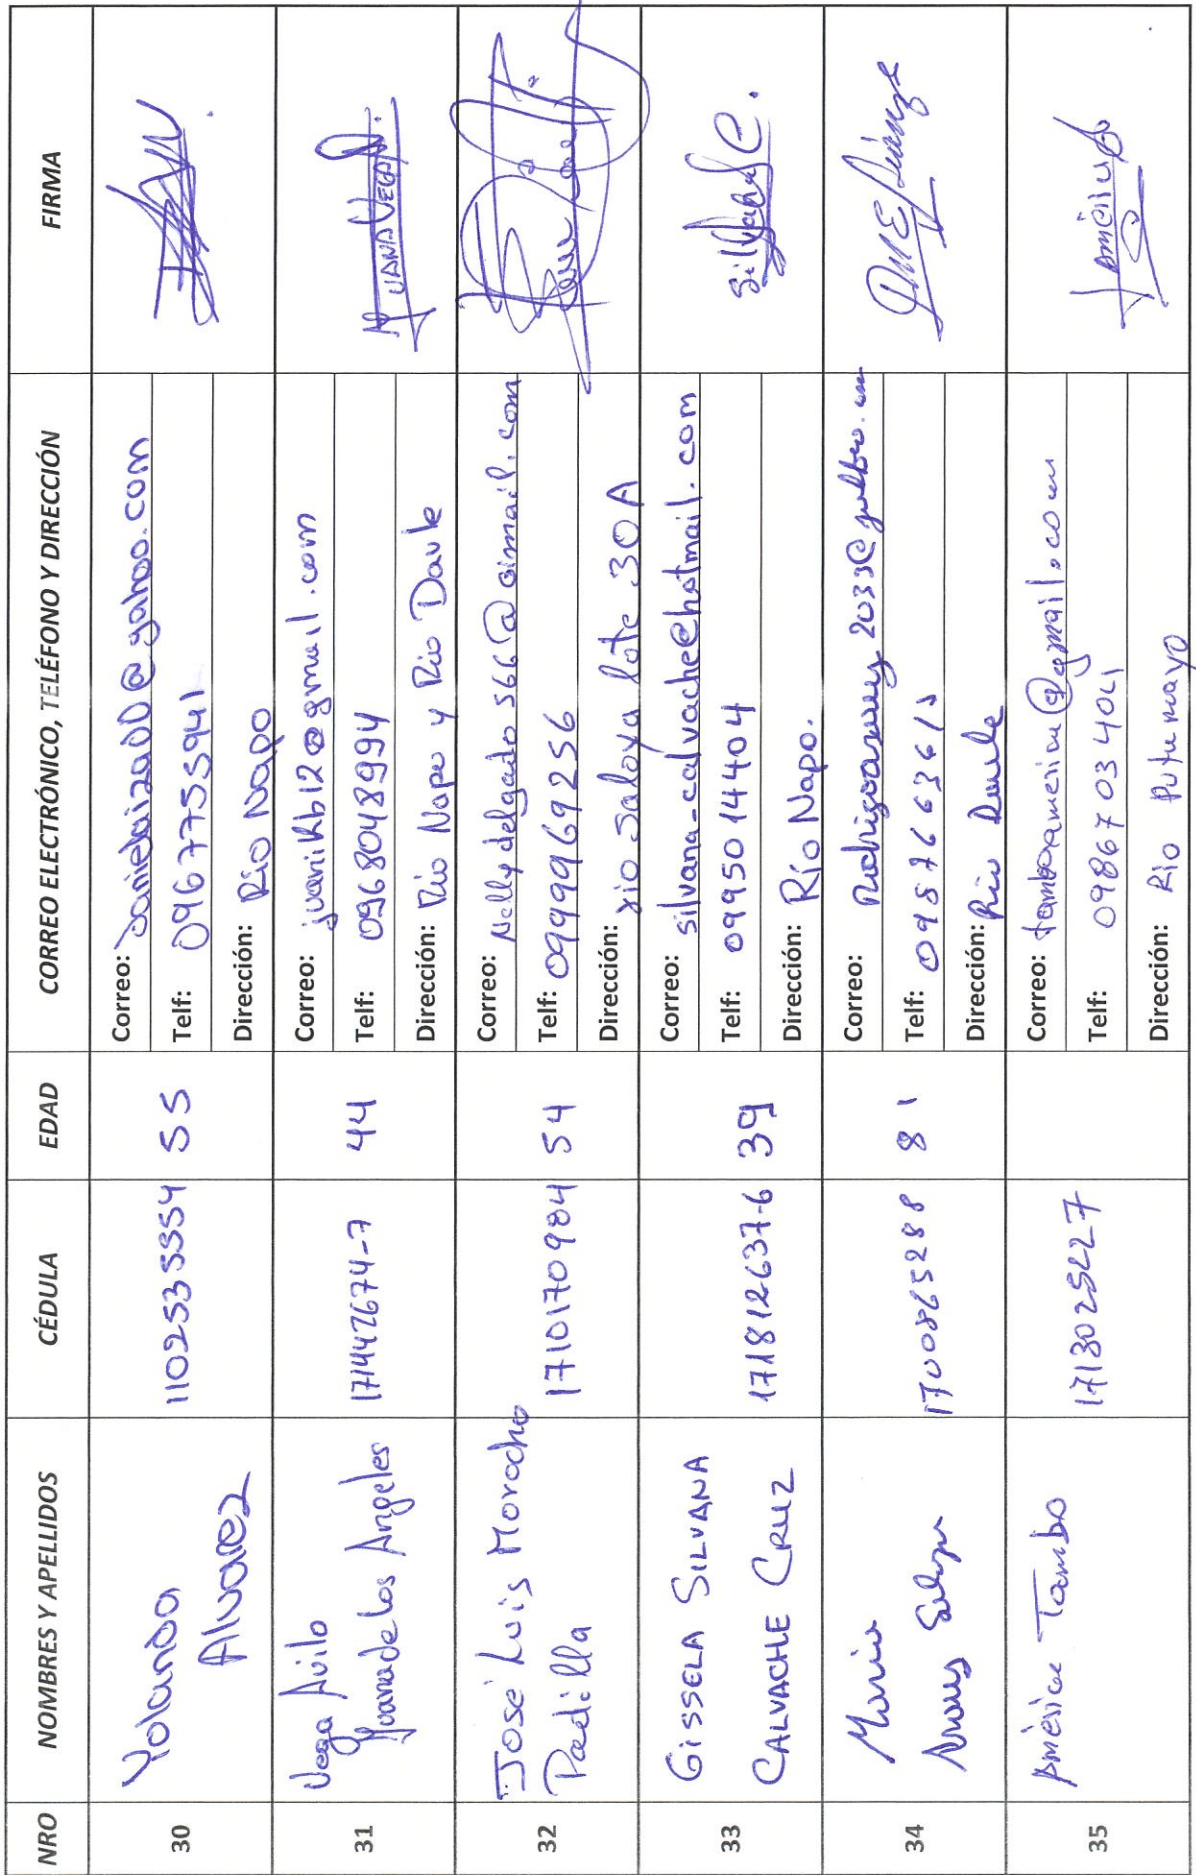 NRO NOMBRES Y APELLIDOS CÉDULA EDAD CORREO ELECTRÓNICO, TELÉFONO Y DIRECCIÓN FIRMA
30 Yolanda Alvarez 1102535554 55
Correo: @yahoo.com
Telf: 0967755941
Dirección: Rio Napo
31 Vega Avila Juana de los Angeles 171442674-7 44
Correo: juanikb12@gmail.com
Telf: 0968048994
Dirección: Rio Napo y Rio Daule
JUANA VEGA A.
32 José Luis Morocho Padilla 1710170984 54
Correo: Nellydelgado566@gimail.com
Telf: 0999969256
Dirección: rio Saloya lote 30A
33 GISSELA SILVANA CALVACHE CRUZ 171812637-6 39
Correo: silvana-calvache@hotmail.com
Telf: 0995014404
Dirección: Río Napo.
Silvana C.
34 1700865288 81
Correo:
Telf:
Dirección: Rio Daule
35 América Tambo 1713025427
Correo: tamboamerica@gmail.com
Telf: 0986703404
Dirección: Rio Putumayo